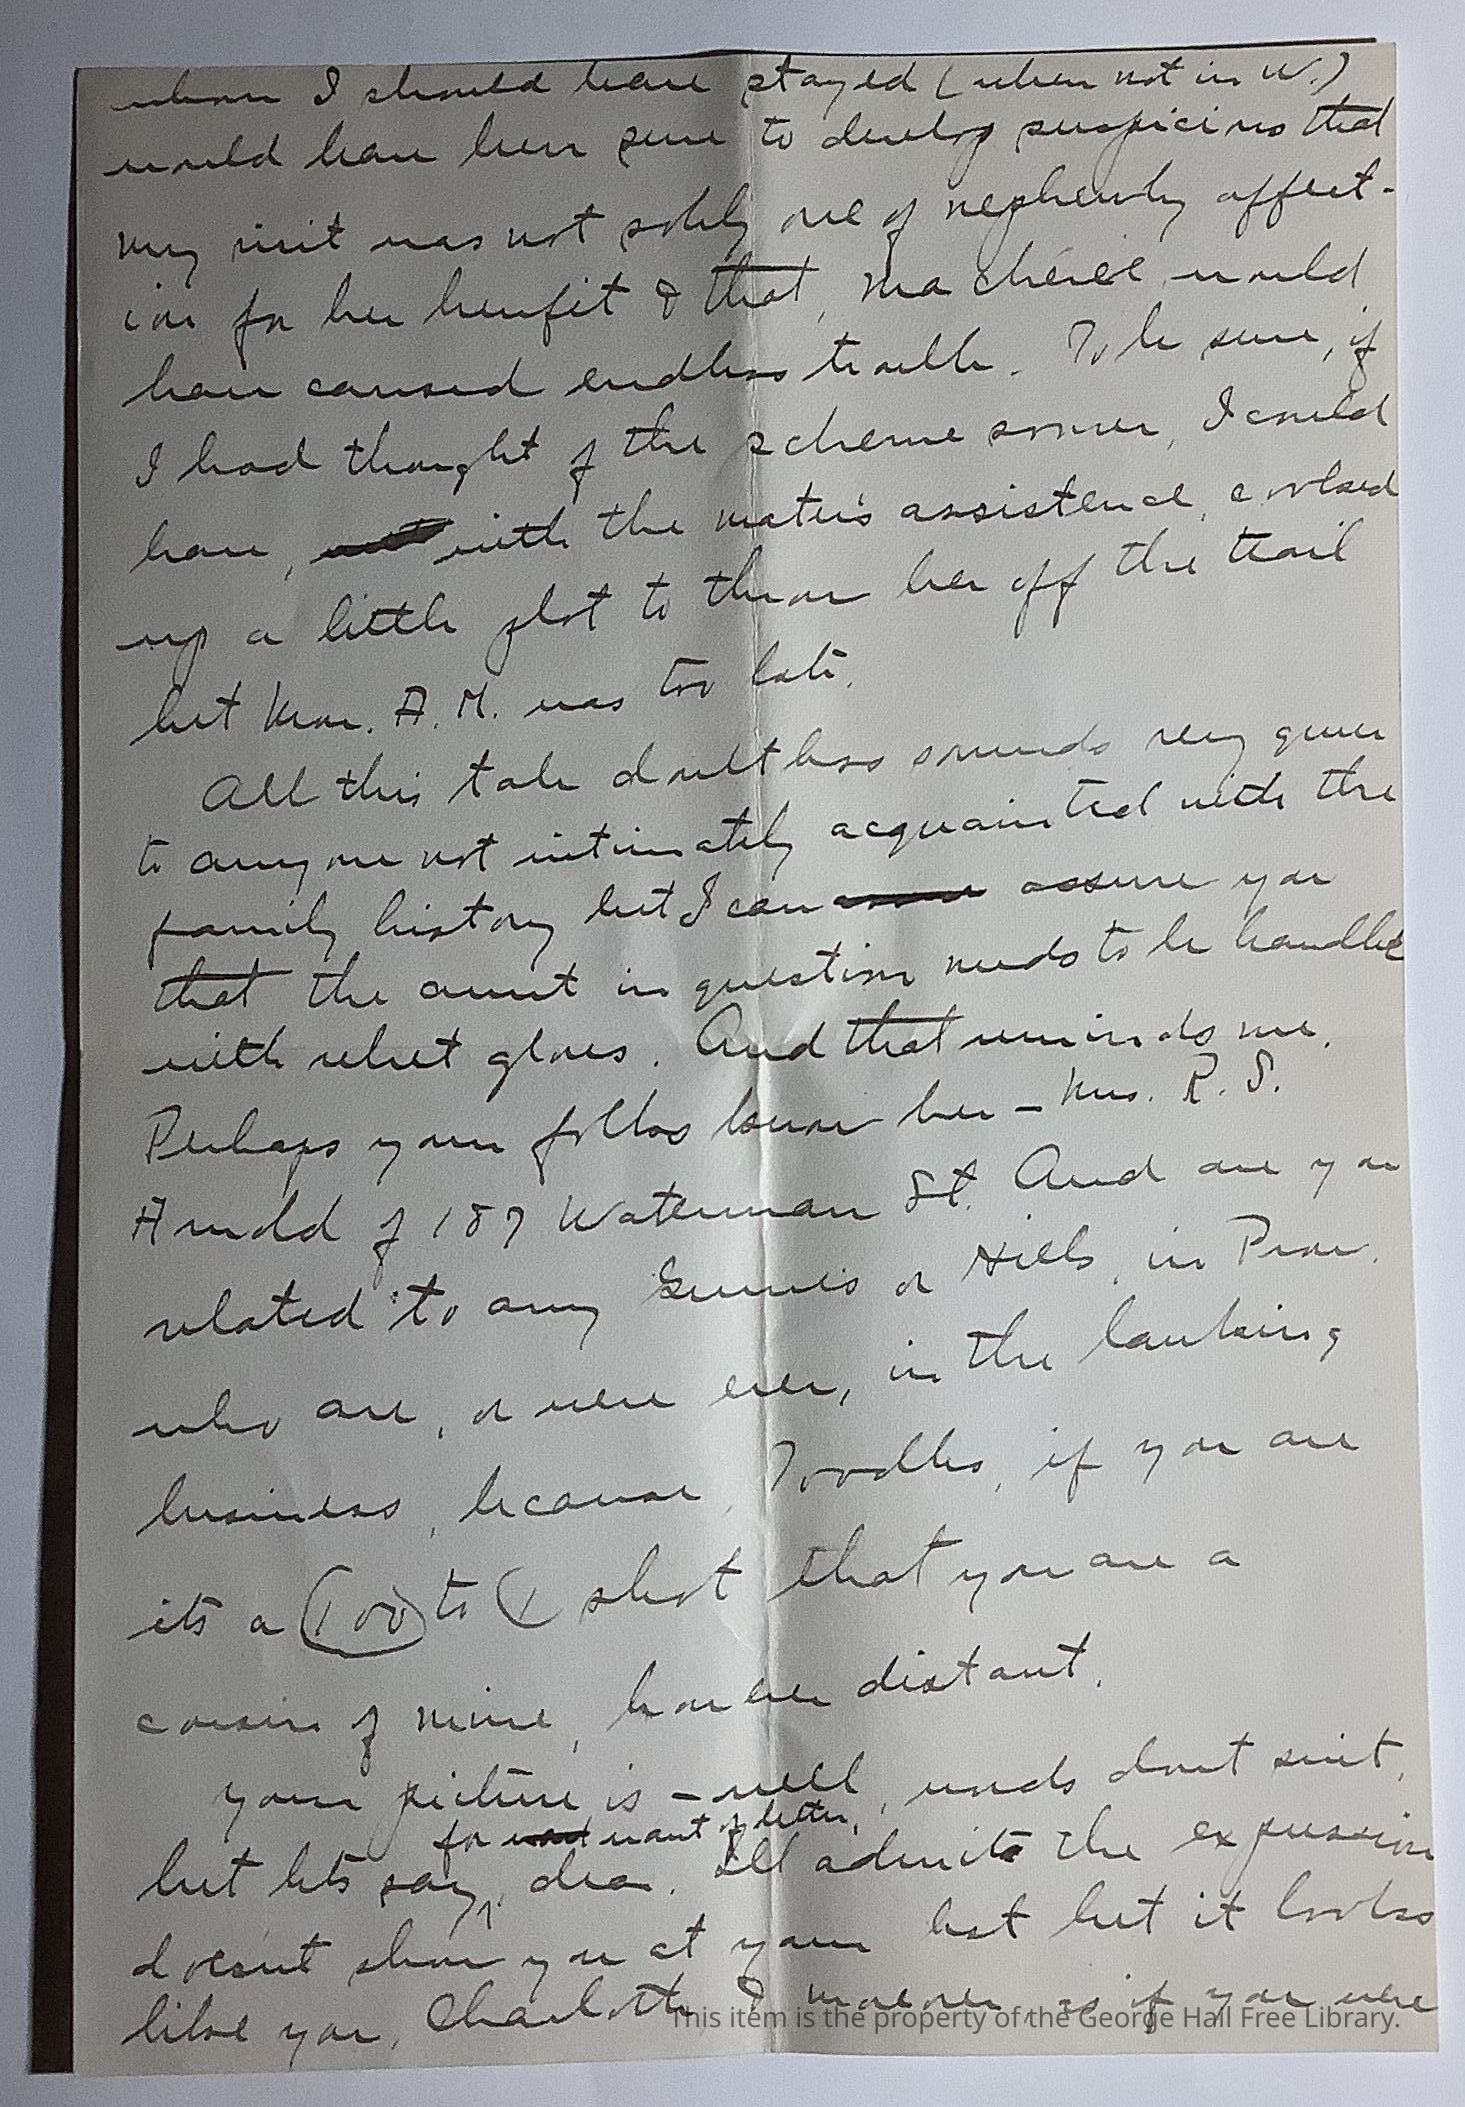 whom I should have stayed (when not in W.)
would have been sure to develop suspicions that
my visit was not solely one of nephewly affect-
ion for her benefit & that, ma cheree would
have caused endless trouble. To be sure, if
I had thought of the scheme sooner, I could
have, with the mater's assistence, cooked
up a little plot to throw her off the trail
but Mon. A.M. was too late.
All this tale doubtless sounds very queer
to anyone not intimately acquainted with the
family history but I can assure you
that the aunt in question needs to be handled
with velvet gloves. And that reminds me.
Perhaps your folks know her – Mrs. R. S.
Arnold of 187 Waterman St. And are you
related to any or Hills, in Prov.
who are, or were ever, in the banking
business, because, Toodles, if you are
its a 100 to 1 shot that you are a
cousin of mine, however distant.
Your picture is – well, words dont suit,
for want want of better,
but lets say, dear. I'll admit the expression
doesn't show you at your best but it looks
like you, Charlotte, & moreover as if you were
This item is the property of the George Hail Free Library.